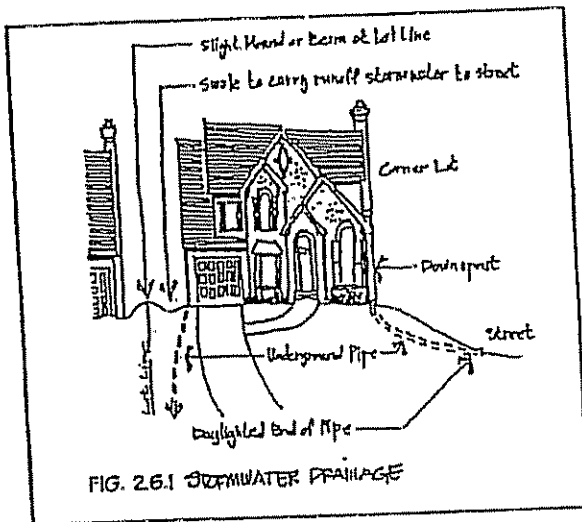 Slight Mound or Berm at Lot Line
Swale to carry runoff stormwater to street
Corner Lot
Downspout
Street
Underground Pipe
Lot Line
Daylighted End of Pipe
FIG. 2.6.1 STORMWATER DRAINAGE